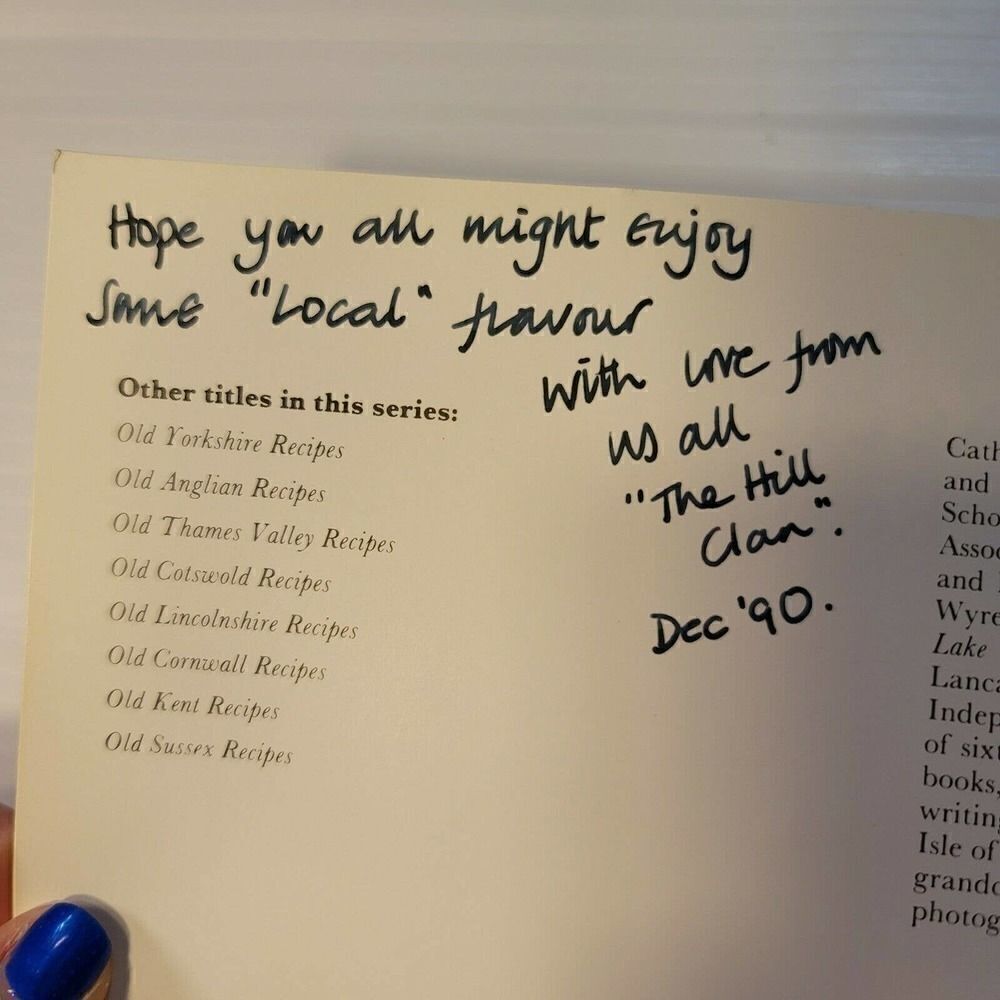 Hope you all might Enjoy
Some "Local" flavour
With love from
us all
"The Hill
Clan".
Dec '90.
Other titles in this series:
Old Yorkshire Recipes
Old Anglian Recipes
Old Thames Valley Recipes
Old Cotswold Recipes
Old Lincolnshire Recipes
Old Cornwall Recipes
Old Kent Recipes
Old Sussex Recipes
and
Lake
of
books,
Isle of